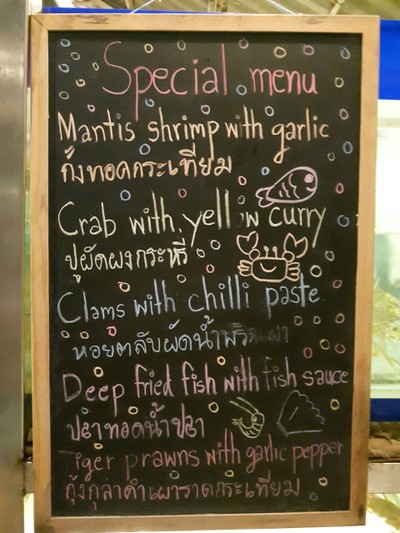 Special menu
Mantis shrimp with garlic
กั้งทอดกระเทียม
Crab with yell 'w curry
ปูผัดผงกระหรี่
Clams with chilli paste
หอยตลับผัดน้ำพริกเผา
Deep fried fish with fish sauce
ปลาทอดน้ำปลา
Tiger prawns with garlic pepper
กุ้งกุลาดำเผาราดกระเทียม